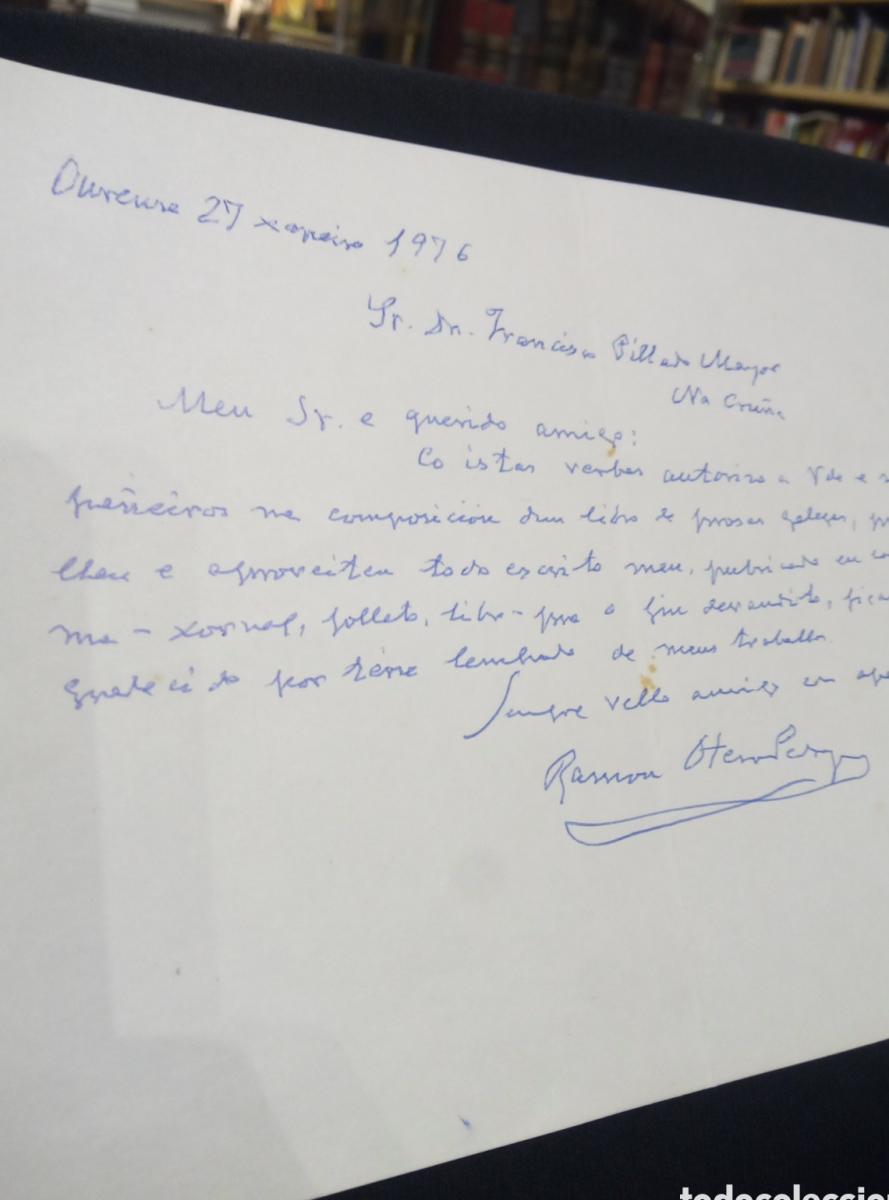 Ourense 27 xaneiro 1976
Sr. Dn. Francisco Pillado Mayor
Na Cruña
Meu Sr. e querido amigo:
Co istas verbas autorizo a Vde e
pañeiros na composición dun libro de prosas galegas,
llan e aproveiten todo escrito meu, pubricado en
ma - xornal, folleto, libro - pra o fin devandito,
gradecido por térse lembrado de meus traballos
Sempre vello amigo en
Ramon Otero Pedrayo
todocoleccion